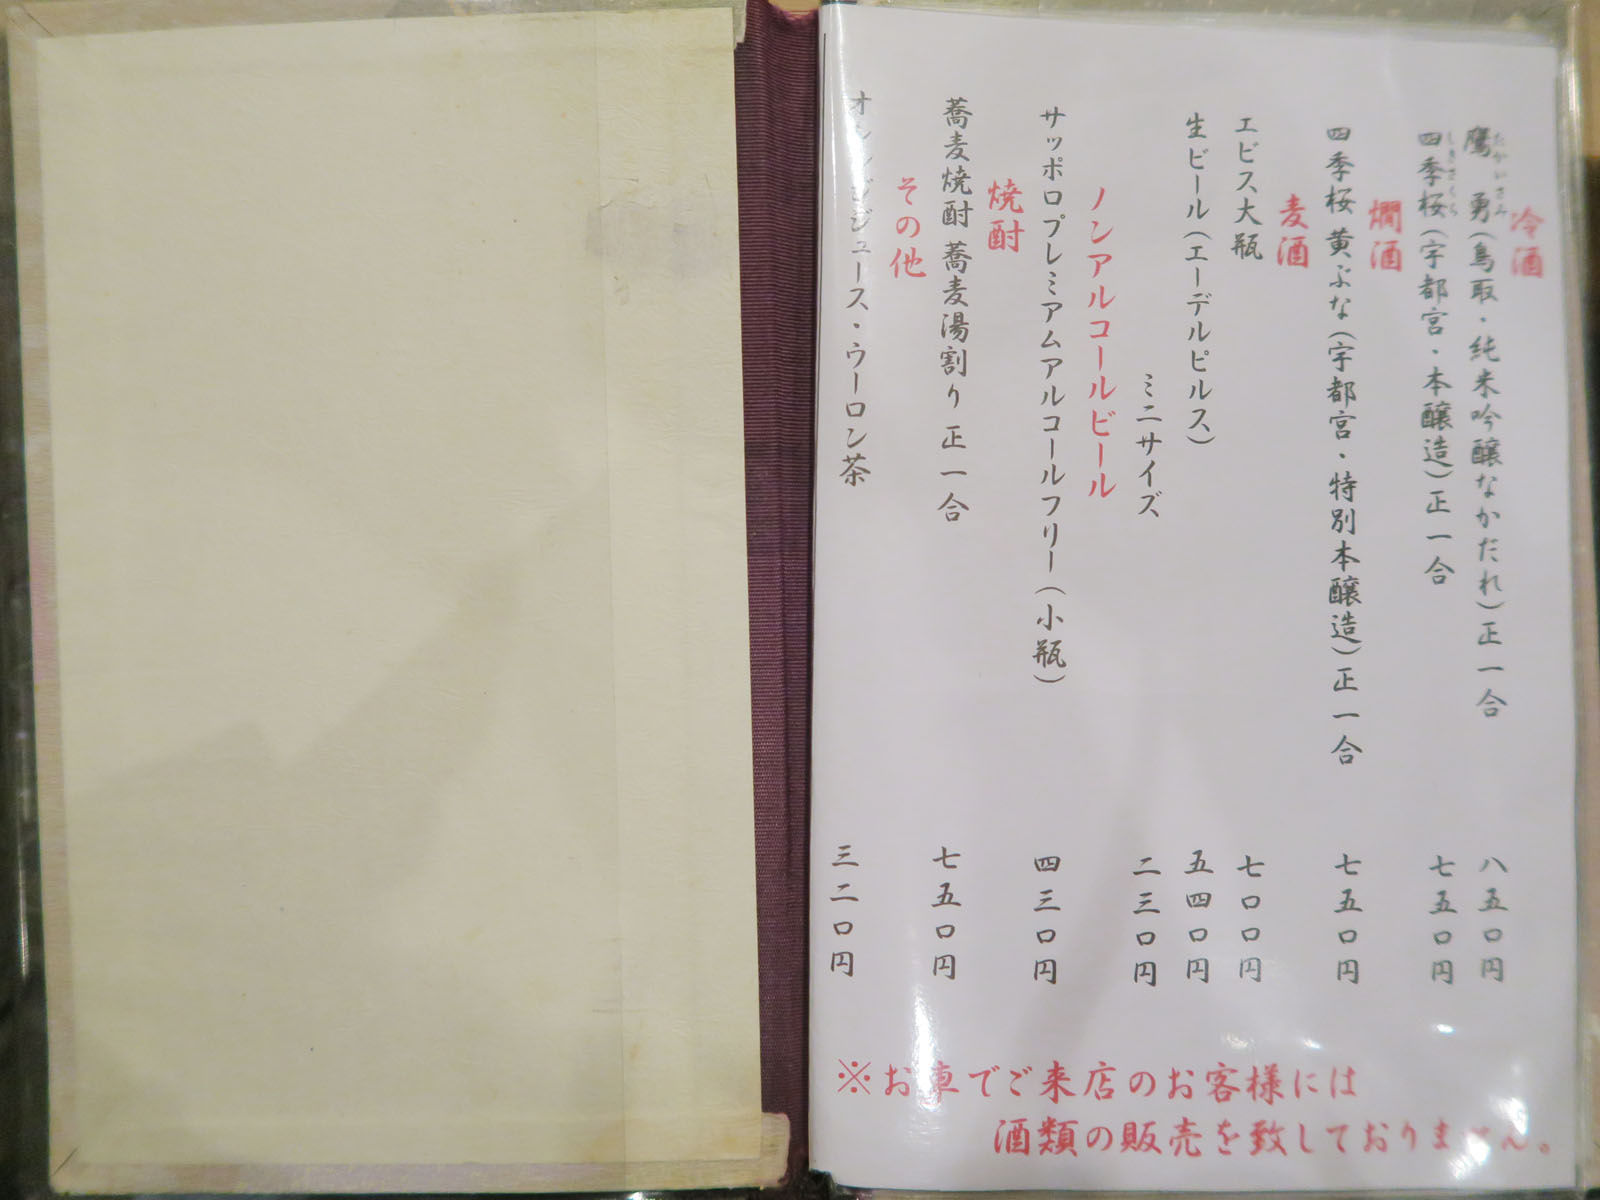 冷酒
鷹勇(鳥取・純米吟醸なかだれ)正一合 八五〇円
たかいさみ
四季桜(宇都宮・本醸造)正一合 七五〇円
しきさくら
燗酒
四季桜 黄ぶな(宇都宮・特別本醸造)正一合 七五〇円
麦酒
エビス大瓶 七〇〇円
生ビール(エーデルピルス) 五四〇円
ミニサイズ 二三〇円
ノンアルコールビール
サッポロプレミアムアルコールフリー(小瓶) 四三〇円
焼酎
蕎麦焼酎 蕎麦湯割り 正一合 七五〇円
その他
オレンジジュース・ウーロン茶 三二〇円
※お車でご来店のお客様には
酒類の販売を致しておりません。